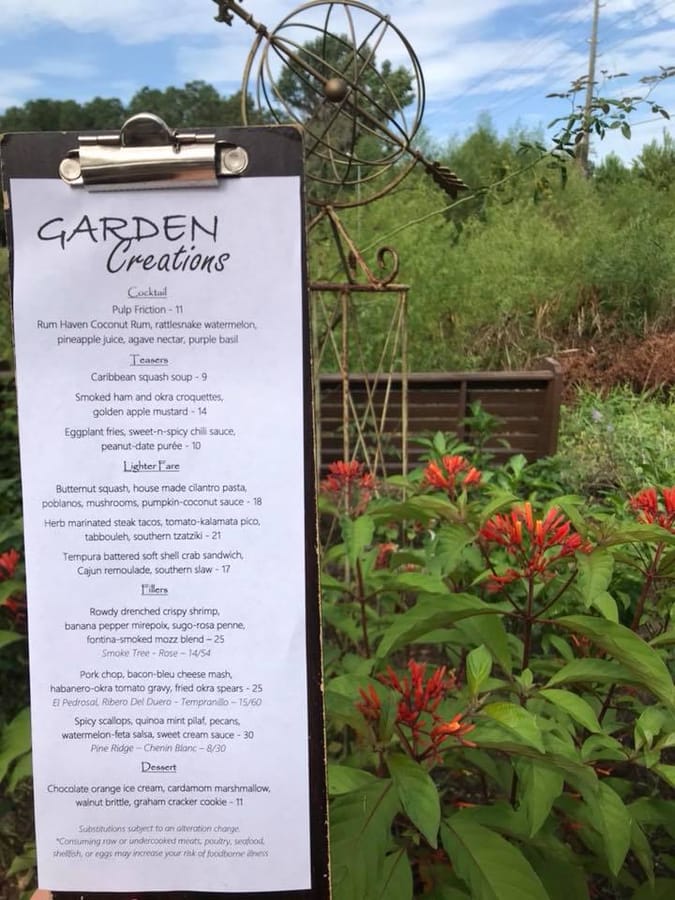 GARDEN
Creations
Cocktail
Pulp Friction - 11
Rum Haven Coconut Rum, rattlesnake watermelon,
pineapple juice, agave nectar, purple basil
Teasers
Caribbean squash soup - 9
Smoked ham and okra croquettes,
golden apple mustard - 14
Eggplant fries, sweet-n-spicy chili sauce,
peanut-date purée - 10
Lighter Fare
Butternut squash, house made cilantro pasta,
poblanos, mushrooms, pumpkin-coconut sauce - 18
Herb marinated steak tacos, tomato-kalamata pico,
tabbouleh, southern tzatziki - 21
Tempura battered soft shell crab sandwich,
Cajun remoulade, southern slaw - 17
Fillers
Rowdy drenched crispy shrimp,
banana pepper mirepoix, sugo-rosa penne,
fontina-smoked mozz blend – 25
Smoke Tree - Rose – 14/54
Pork chop, bacon-bleu cheese mash,
habanero-okra tomato gravy, fried okra spears - 25
El Pedrosal, Ribero Del Duero - Tempranillo – 15/60
Spicy scallops, quinoa mint pilaf, pecans,
watermelon-feta salsa, sweet cream sauce - 30
Pine Ridge – Chenin Blanc – 8/30
Dessert
Chocolate orange ice cream, cardamom marshmallow,
walnut brittle, graham cracker cookie - 11
Substitutions subject to an alteration charge.
*Consuming raw or undercooked meats, poultry, seafood,
shellfish, or eggs may increase your risk of foodborne illness